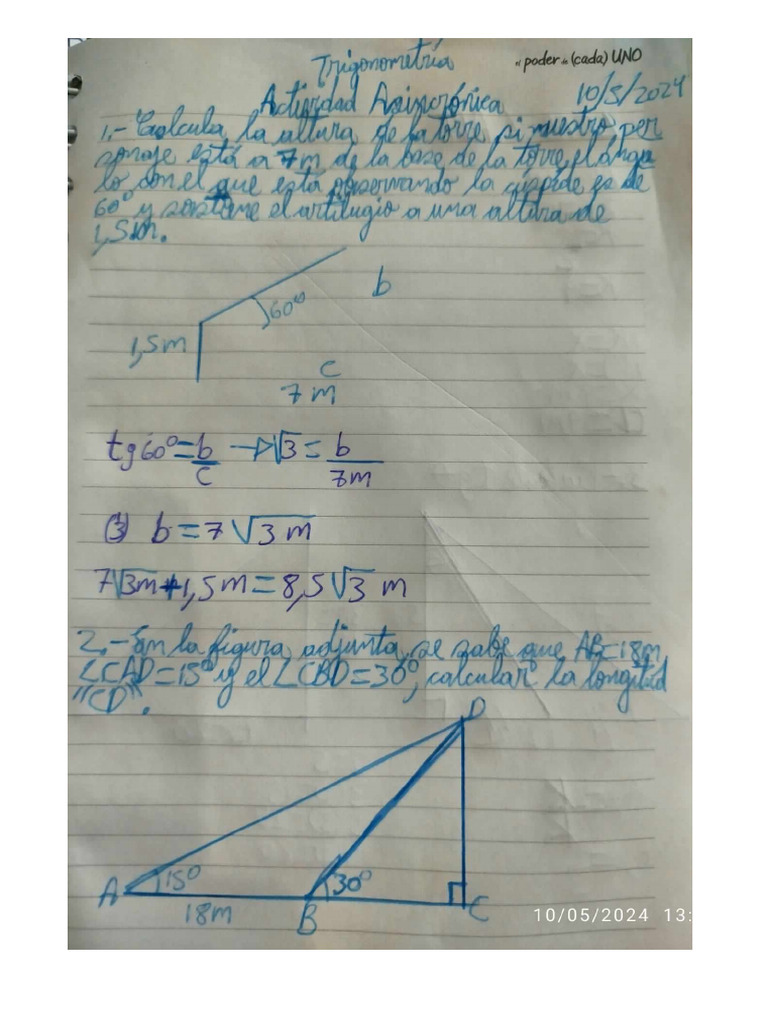 Trigonometría
el poder de (cada) UNO
Actividad Asincrónica 10/5/2024
1.- Calcula la altura de la torre si nuestro per
sonaje está a 7m de la base de la torre, el ángu
lo con el que está observando la cúspide es de
60° y sostiene el artilugio a una altura de
1,5m.
b
60°
1,5m
c
7 m
tg60°=b/c → √3 = b/7m
b = 7 √3 m
7√3m + 1,5m = 8,5√3 m
2.- En la figura adjunta, se sabe que AB=18m,
∠CAD=15° y el ∠CBD=30°, calcular la longitud
"CD".
D
A 15° B 30° C
18m
10/05/2024 13: